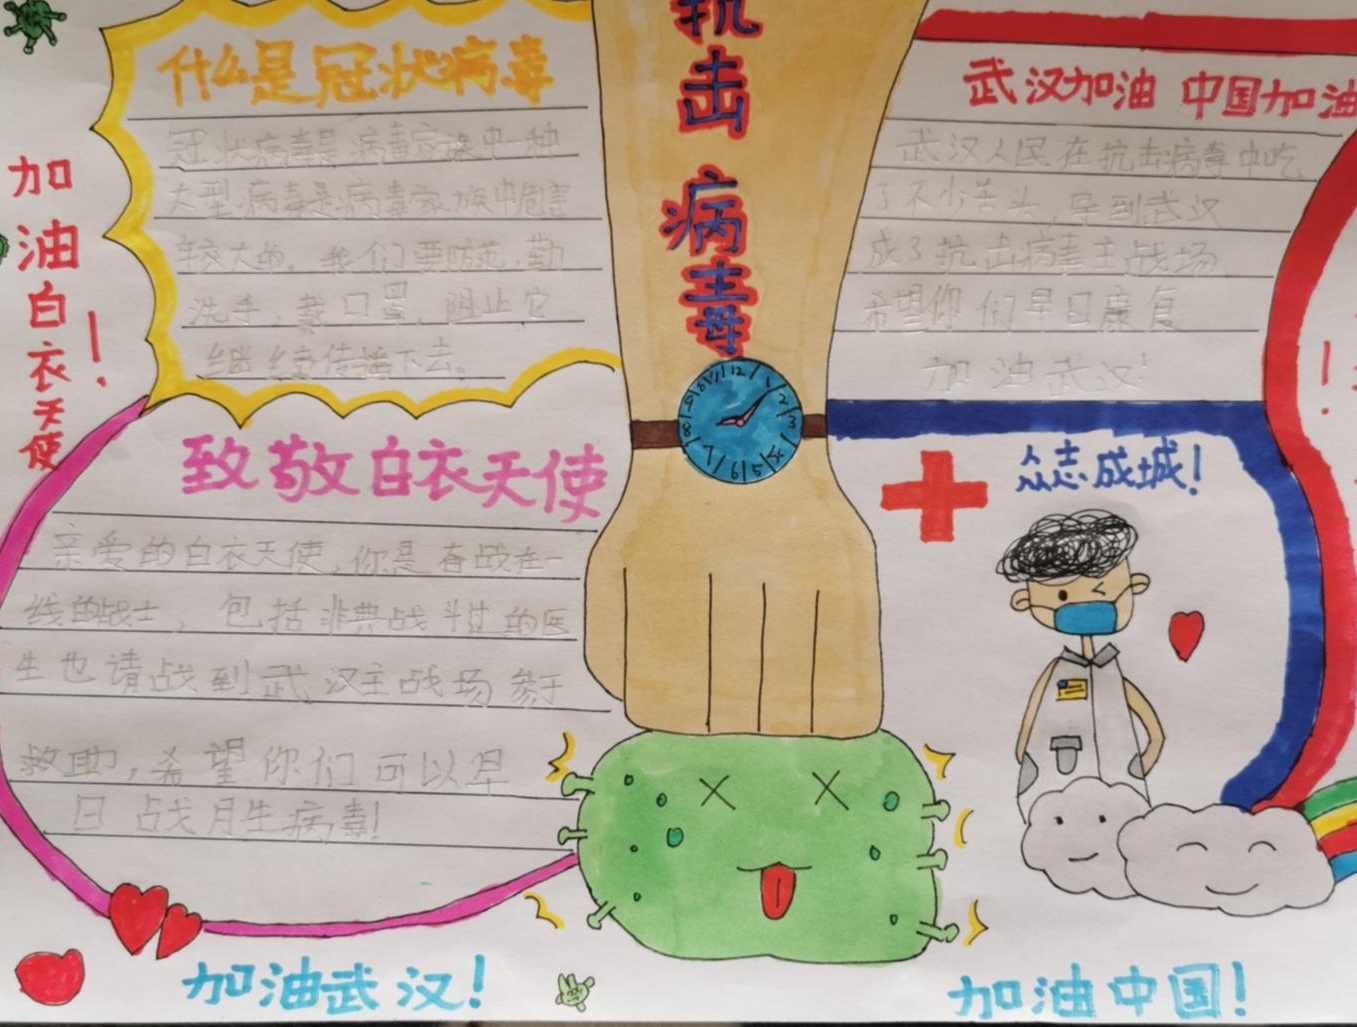 抗击病毒
什么是冠状病毒
冠状病毒是病毒家族中一种
大型病毒是病毒家族中危害
较大的。我们要防范,勤
洗手,戴口罩,阻止它
继续传播下去。
加油白衣天使!
致敬白衣天使
亲爱的白衣天使,你是奋战在一
线的战士,包括非典战斗过的医
生也请战到武汉主战场参于
救助,希望你们可以早
日战月生病毒!
加油武汉!
武汉加油 中国加油
武汉人民在抗击病毒中吃
了不少苦头,导到武汉
成了抗击病毒主战场
希望你们早日康复
加油武汉!
众志成城!
12
1
2
3
5
6
7
加油中国!